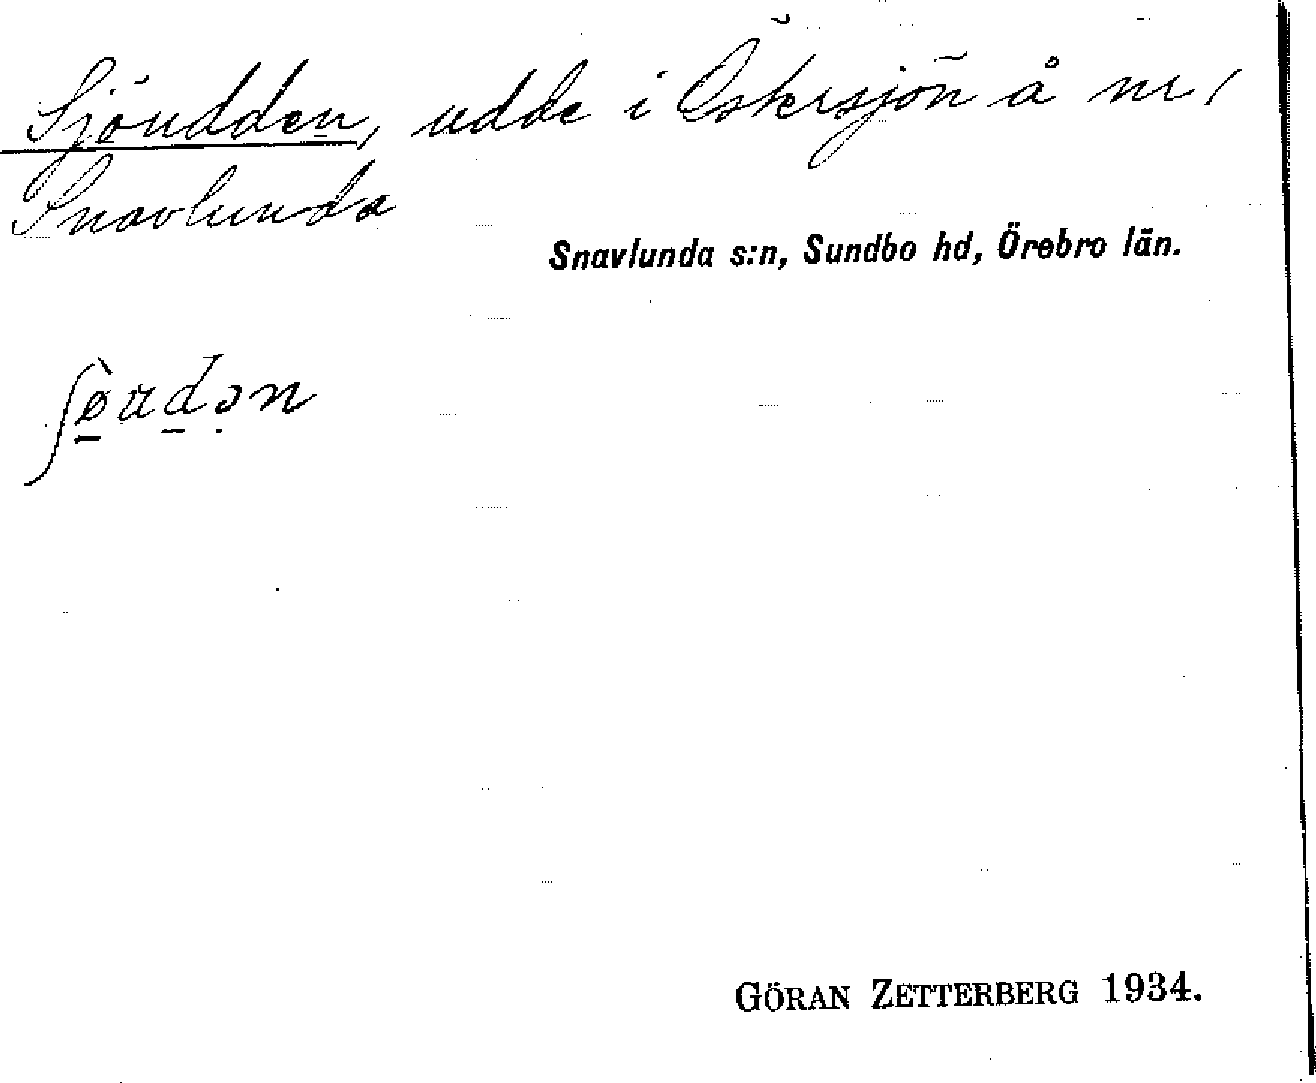 Sjöudden, udde i Östersjön å nr 1
Snavlunda
Snavlunda s:n, Sundbo hd, Örebro län.
GÖRAN ZETTERBERG 1934.